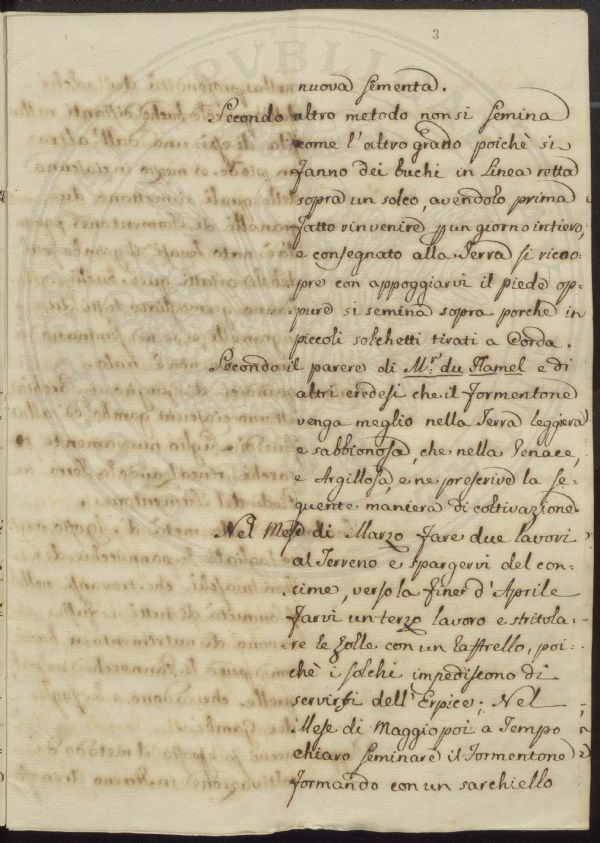 3
nuova sementa.
Secondo altro metodo non si semina
come l'altro grano poichè si
fanno dei buchi in Linea retta
sopra un solco, avendolo prima
fatto rinvenire p un giorno intiero,
e consegnato alla Terra si ricuo-
pre con appoggiarvi il piede op-
pure si semina sopra porche in
piccoli solchetti tirati a Corda.
Secondo il parere di Mr. du Hamel e di
altri credesi che il formentone
venga meglio nella Terra leggiera
e sabbionosa, che nella tenace,
e Argillosa, e ne prescrive la se-
guente maniera di coltivazione.
Nel Mese di Marzo fare due lavori
al Terreno e spargervi del con-
cime, verso la fine d'Aprile
farvi un terzo lavoro e stritola-
re le zolle con un raffrello, poi-
chè i solchi impediscono di
servirsi dell'Erpice; Nel
Mese di Maggio poi a Tempo
chiaro seminare il Formentone
formando con un sarchiello